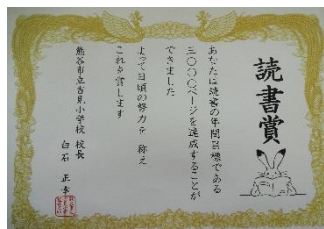 読書賞
あなたは読書の年間目標である
三〇〇〇ページを達成することが
できました
よって日頃の努力を 称え
これを賞します
熊谷市立吉見小学校 校長
白石 正幸